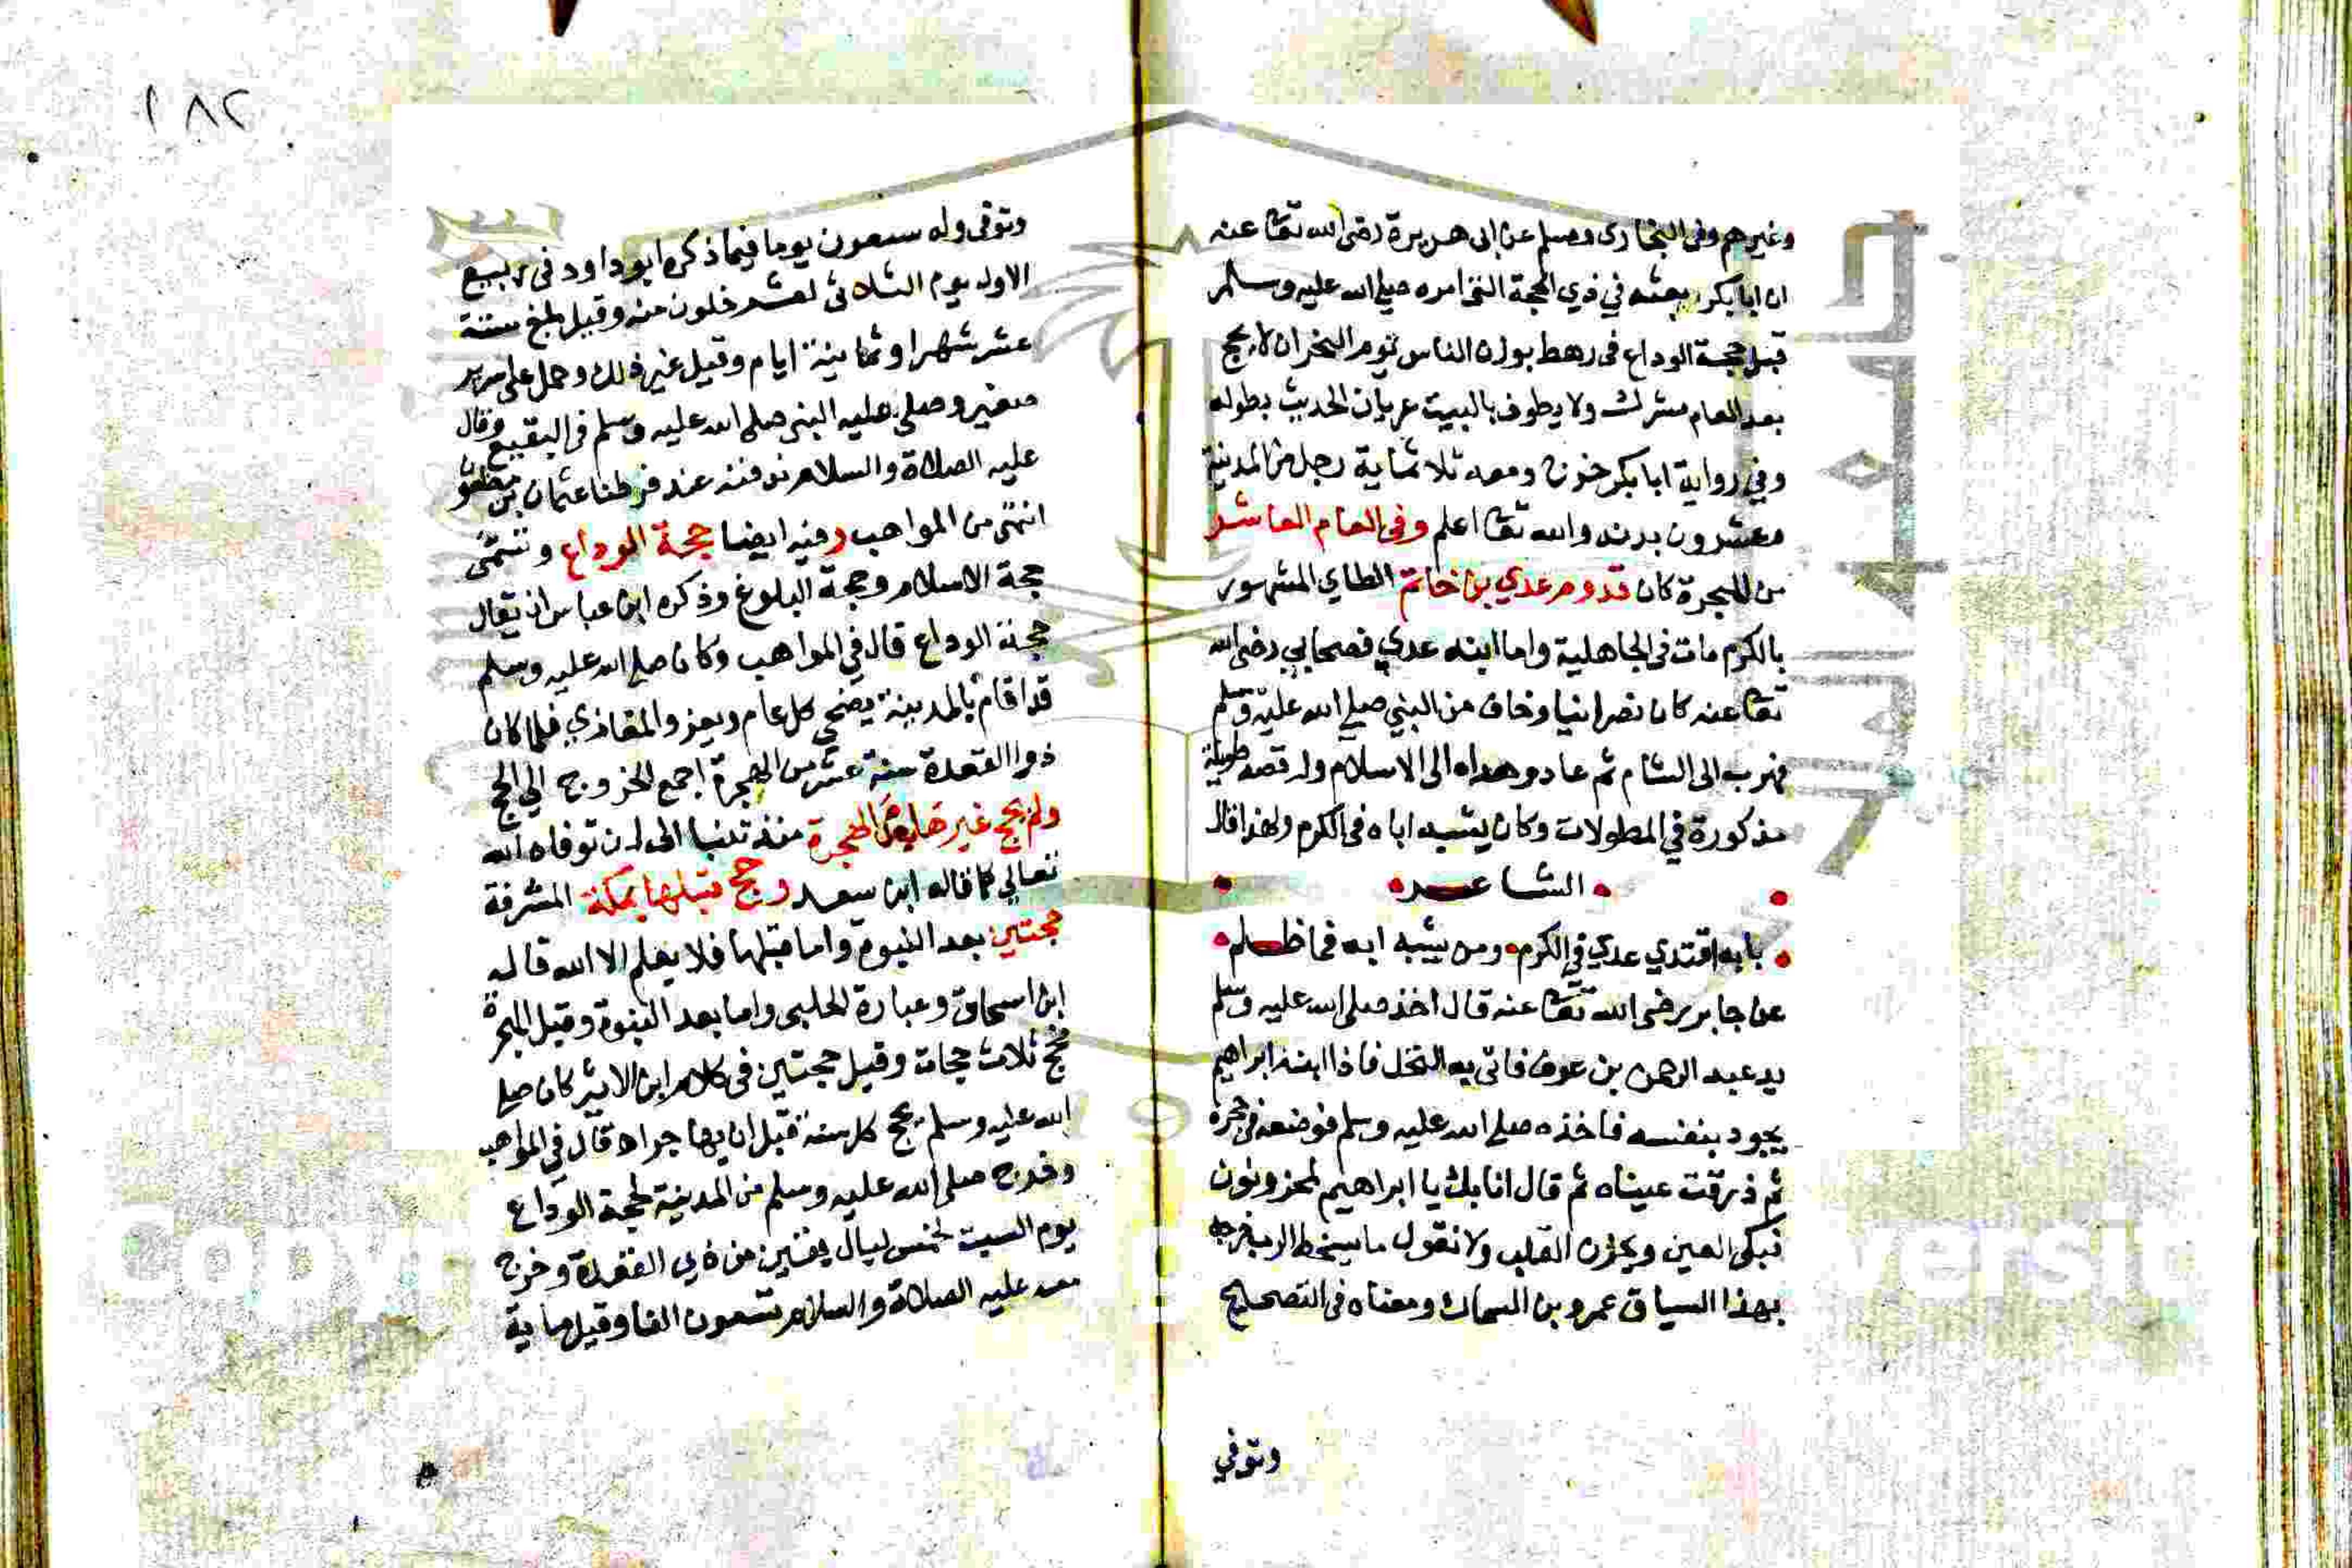 وغيرهم وفى البخارى ومسلم عن ابى هريرة رضى الله تعا عنه
ان ابا بكر بعثه في ذي الحجة التى امره صلى الله عليه وسلم
قبل حجة الوداع فى رهط يوذن الناس يوم النحر ان لا يحج
بعد العام مشرك ولا يطوف بالبيت عريان الحديث بطوله
وفي رواية ابا بكر خرج ومعه ثلاثماية رجل من المدينة
وعشرون بدنه والله تعا اعلم وفى العام العاشر
من الهجرة كان قدوم عدي بن حاتم الطاي المشهور
بالكرم مات فى الجاهلية واما ابنه عدي فصحابي رضى الله
تعا عنه كان نصرانيا وخاف من النبي صلى الله عليه وسلم
فهرب الى الشام ثم عاد وهداه الى الاسلام وله قصه طويلة
مذكورة في المطولات وكان يشبه اباه فى الكرم ولهذا قال
الشاعر
بابه اقتدي عدي في الكرم ومن يشبه ابه فما ظلم
عن جابر رضى الله تعا عنه قال اخذ صلى الله عليه وسلم
بيد عبد الرحمن بن عوف فاتى به النخل فاذا ابنه ابراهيم
يجود بنفسه فاخذه صلى الله عليه وسلم فوضعه في حجرة
ثم ذرقت عيناه ثم قال انا بك يا ابراهيم لمحزونون
تبكى العين ويحزن القلب ولا نقول ما يسخط الرب خرجه
بهذا السياق عمرو بن السماك ومعناه فى الصحيح
وتوفي
١٨٢
وتوفى وله سبعون يوما فيما ذكره ابو داود فى ربيع
الاول يوم الثلاثى لعشر خلون منه وقيل بلغ ستة
عشر شهرا وثمانية ايام وقيل غير ذلك وحمل على سرير
صغير وصلى عليه النبى صلى الله عليه وسلم فى البقيع وقال
عليه الصلاة والسلام ندفنه عند فرطنا عثمان بن مظعون
انتهى من المواهب وفيه ايضا حجة الوداع وتسمى
حجة الاسلام وحجة البلوغ وذكره ابن عباس ان يقال
حجة الوداع قال في المواهب وكان صلى الله عليه وسلم
قد اقام بالمدينة يضحى كل عام ويعزو المغازي فلما كان
ذو القعدة سنة عشر من الهجرة اجمع الخروج الي الحج
ولم يحج غيرها الهجرة منذ تنبا الى ان توفاه الله
تعالي كما قاله ابن سعد وحج قبلها بمكة المشرفة
حجتين بعد النبوة واما قبلها فلا يعلم الا الله قاله
ابن اسحاق وعبارة الحلبى واما بعد النبوة وقبل الهجرة
فحج ثلاث حجات وقيل حجتين فى كلام ابن الاثير كان صلى
الله عليه وسلم يحج كل سنة قبل ان يهاجر اه قال في المواهب
وخرج صلى الله عليه وسلم من المدينة لحجة الوداع
يوم السبت لخمس ليال بقين من ذي القعدة وخرج
معه عليه الصلاة والسلام تسعون الفا وقيل ماية